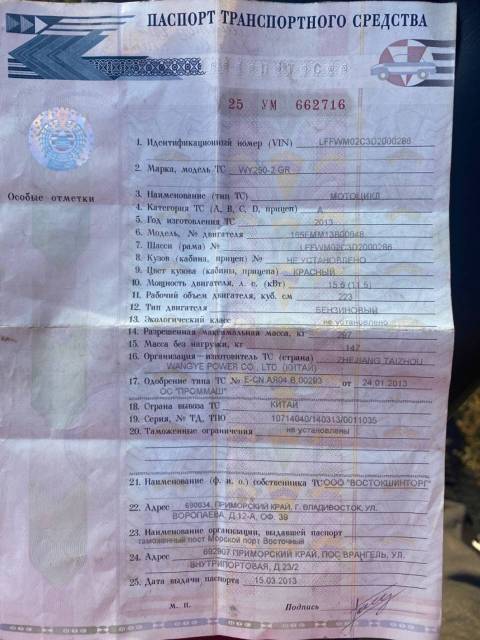 ПАСПОРТ ТРАНСПОРТНОГО СРЕДСТВА
25 УМ 662716
1. Идентификационный номер (VIN) LFFWM02C3D2000286
2. Марка, модель ТС WY250-2 GR
Особые отметки
3. Наименование (тип ТС) МОТОЦИКЛ
4. Категория ТС (A, B, C, D, прицеп) A
5. Год изготовления ТС 2013
6. Модель, № двигателя 165FMM13800048
7. Шасси (рама) № LFFWM02C3D2000286
8. Кузов (кабина, прицеп) № НЕ УСТАНОВЛЕНО
9. Цвет кузова (кабины, прицепа) КРАСНЫЙ
10. Мощность двигателя, л. с. (кВт) 15.6 (11.5)
11. Рабочий объем двигателя, куб. см 223
12. Тип двигателя БЕНЗИНОВЫЙ
13. Экологический класс не установлено
14. Разрешенная максимальная масса, кг 297
15. Масса без нагрузки, кг 147
16. Организация-изготовитель ТС (страна) ZHEJIANG TAIZHOU
WANGYE POWER CO., LTD (КИТАЙ)
17. Одобрение типа ТС № E-CN.AЯ04.B.00293 от 24.01.2013
ОС "ПРОММАШ"
18. Страна вывоза ТС КИТАЙ
19. Серия, № ТД, ТПО 10714040/140313/0011035
20. Таможенные ограничения не установлены
21. Наименование (ф. и. о.) собственника ТС ООО "ВОСТОКШИНТОРГ"
22. Адрес 690034, ПРИМОРСКИЙ КРАЙ, Г. ВЛАДИВОСТОК, УЛ.
ВОРОПАЕВА, Д.12-А, ОФ. 39
23. Наименование организации, выдавшей паспорт
таможенный пост Морской порт Восточный
24. Адрес 692907 ПРИМОРСКИЙ КРАЙ, ПОС ВРАНГЕЛЬ, УЛ.
ВНУТРИПОРТОВАЯ, Д 23/2
25. Дата выдачи паспорта 15.03.2013
М. П. Подпись